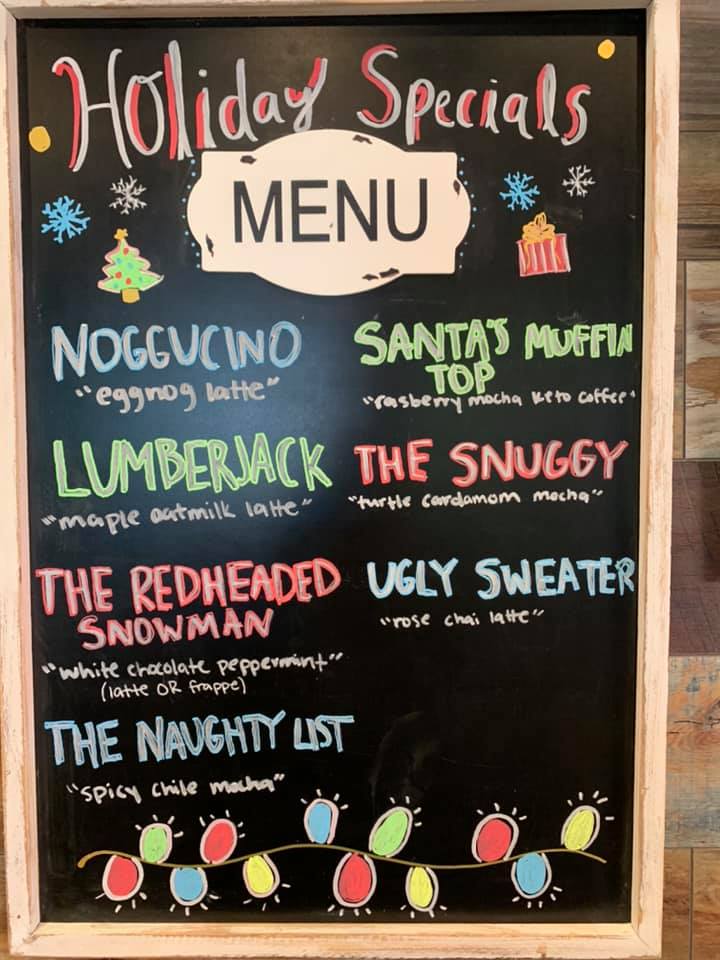 Holiday Specials
MENU
NOGGUCINO
"eggnog latte"
LUMBERJACK
"maple oatmilk latte"
THE REDHEADED
SNOWMAN
"white chocolate peppermint"
(latte OR frappe)
THE NAUGHTY LIST
"spicy chile mocha"
SANTA'S MUFFIN
TOP
"rasberry mocha keto coffee"
THE SNUGGY
"turtle cardamom mocha"
UGLY SWEATER
"rose chai latte"